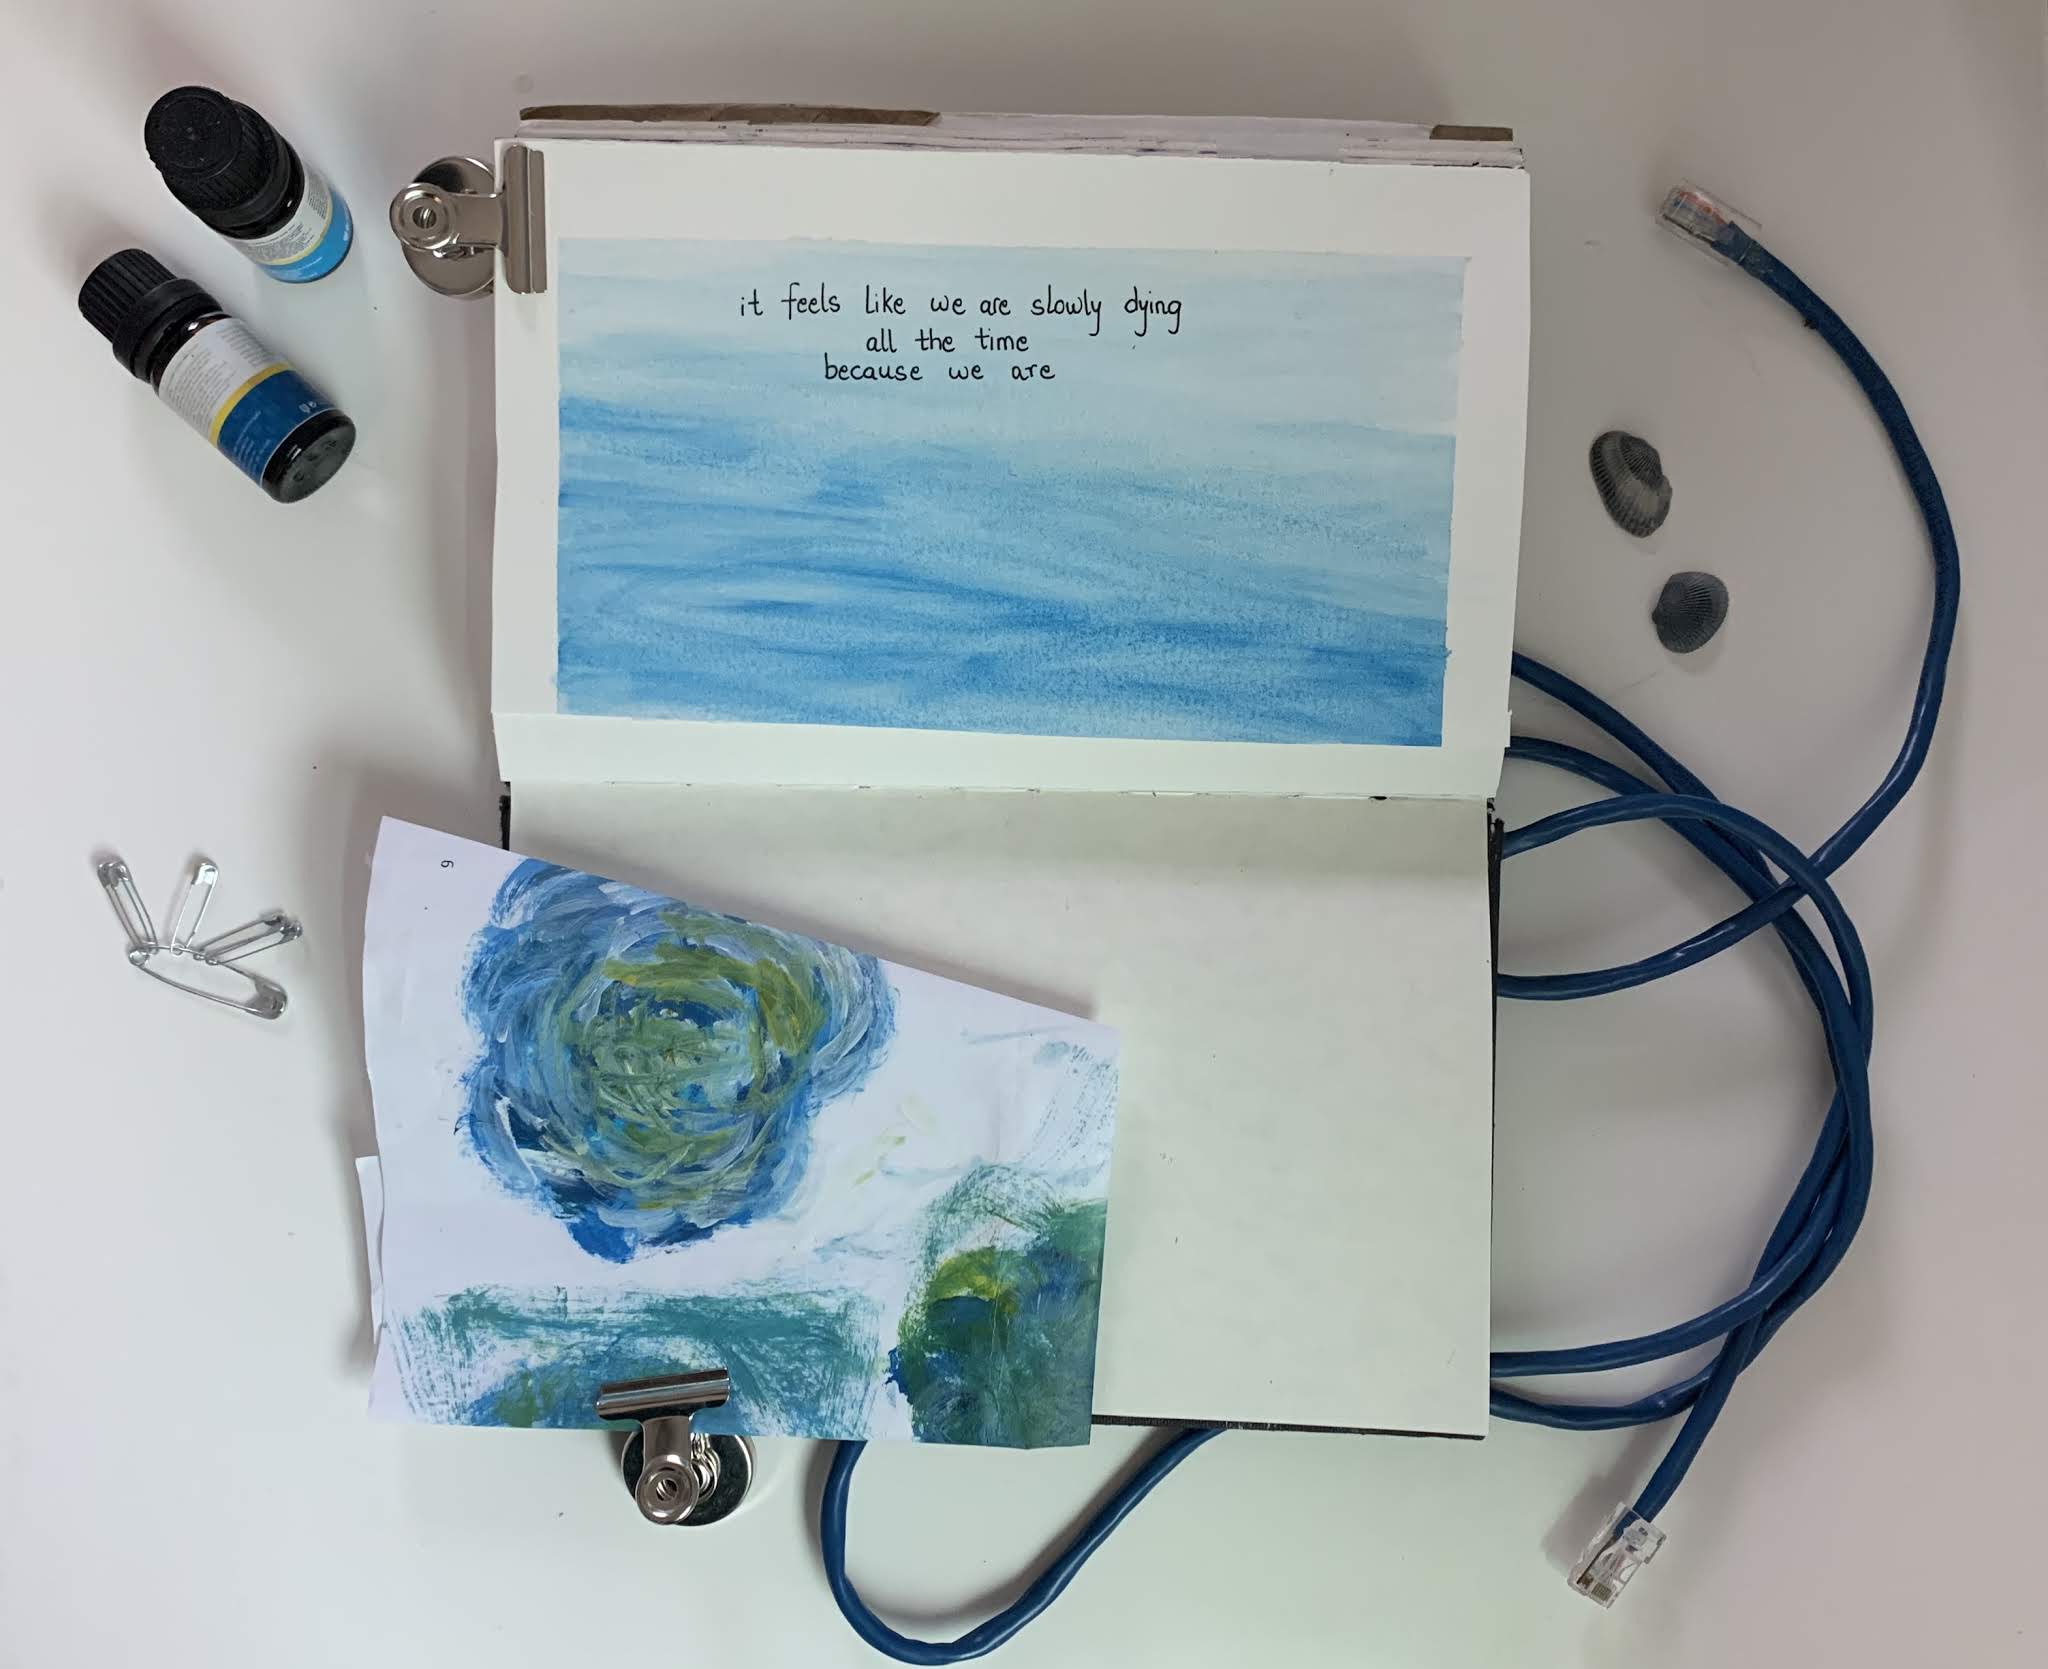 it feels like we are slowly dying
all the time
because we are
6